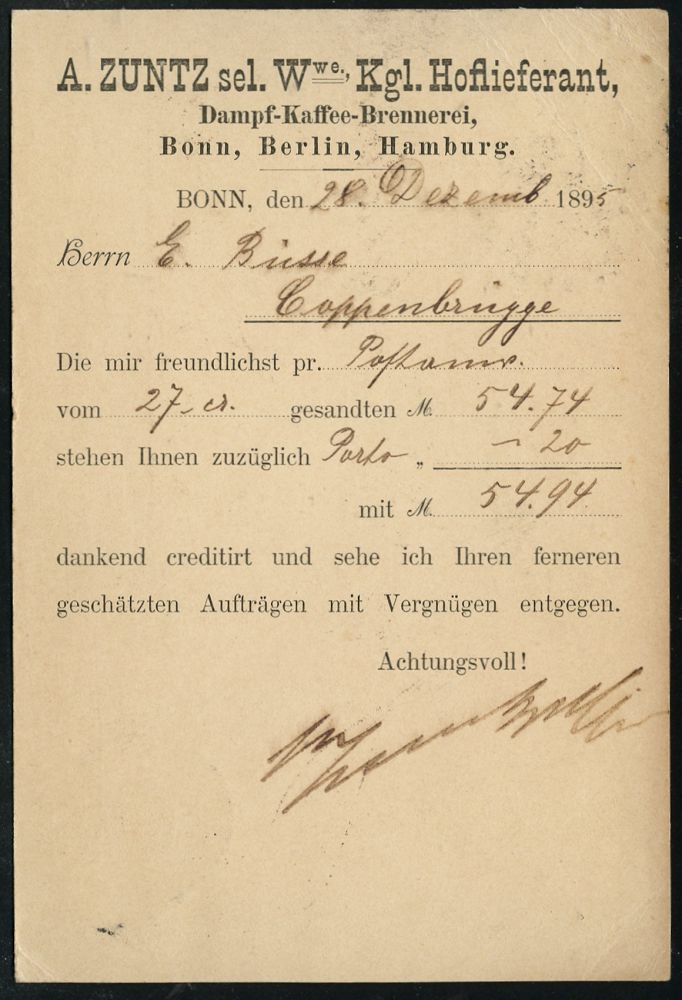 A. ZUNTZ sel. Wwe., Kgl. Hoflieferant,
Dampf-Kaffee-Brennerei,
Bonn, Berlin, Hamburg.
BONN, den 28. Dezemb 1895
Herrn E. Büsse
Coppenbrügge
Die mir freundlichst pr. Postanw.
vom 27. cr. gesandten M. 54.74
stehen Ihnen zuzüglich Porto „ – 20
mit M. 54.94
dankend creditirt und sehe ich Ihren ferneren
geschätzten Aufträgen mit Vergnügen entgegen.
Achtungsvoll!